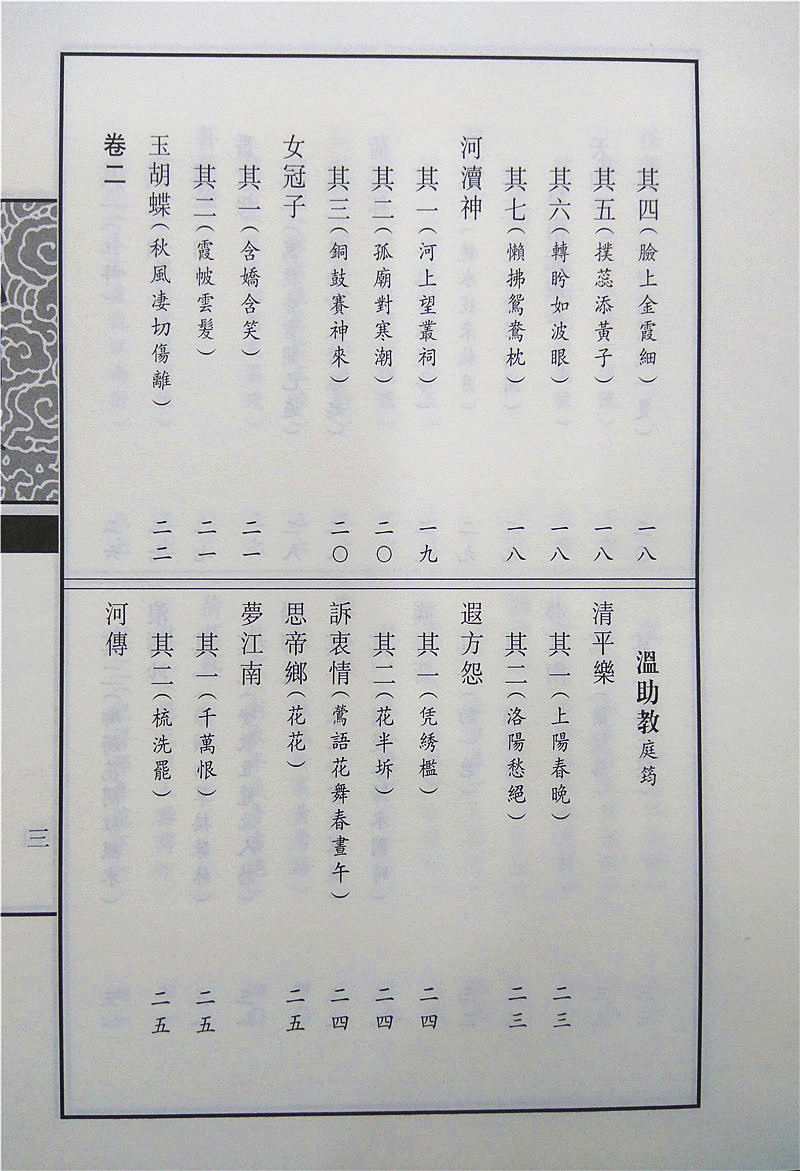 其四（臉上金霞細） 一八
其五（撲蕊添黃子） 一八
其六（轉眄如波眼） 一八
其七（懶拂鴛鴦枕） 一八
河瀆神
其一（河上望叢祠） 一九
其二（孤廟對寒潮） 二〇
其三（銅鼓賽神來） 二〇
女冠子
其一（含嬌含笑） 二一
其二（霞帔雲髮） 二一
玉胡蝶（秋風凄切傷離） 二二
卷二
溫助教庭筠
清平樂
其一（上陽春晚） 二三
其二（洛陽愁絕） 二三
遐方怨
其一（凭綉檻） 二四
其二（花半坼） 二四
訴衷情（鶯語花舞春晝午） 二四
思帝鄉（花花） 二五
夢江南
其一（千萬恨） 二五
其二（梳洗罷） 二五
河傳
三